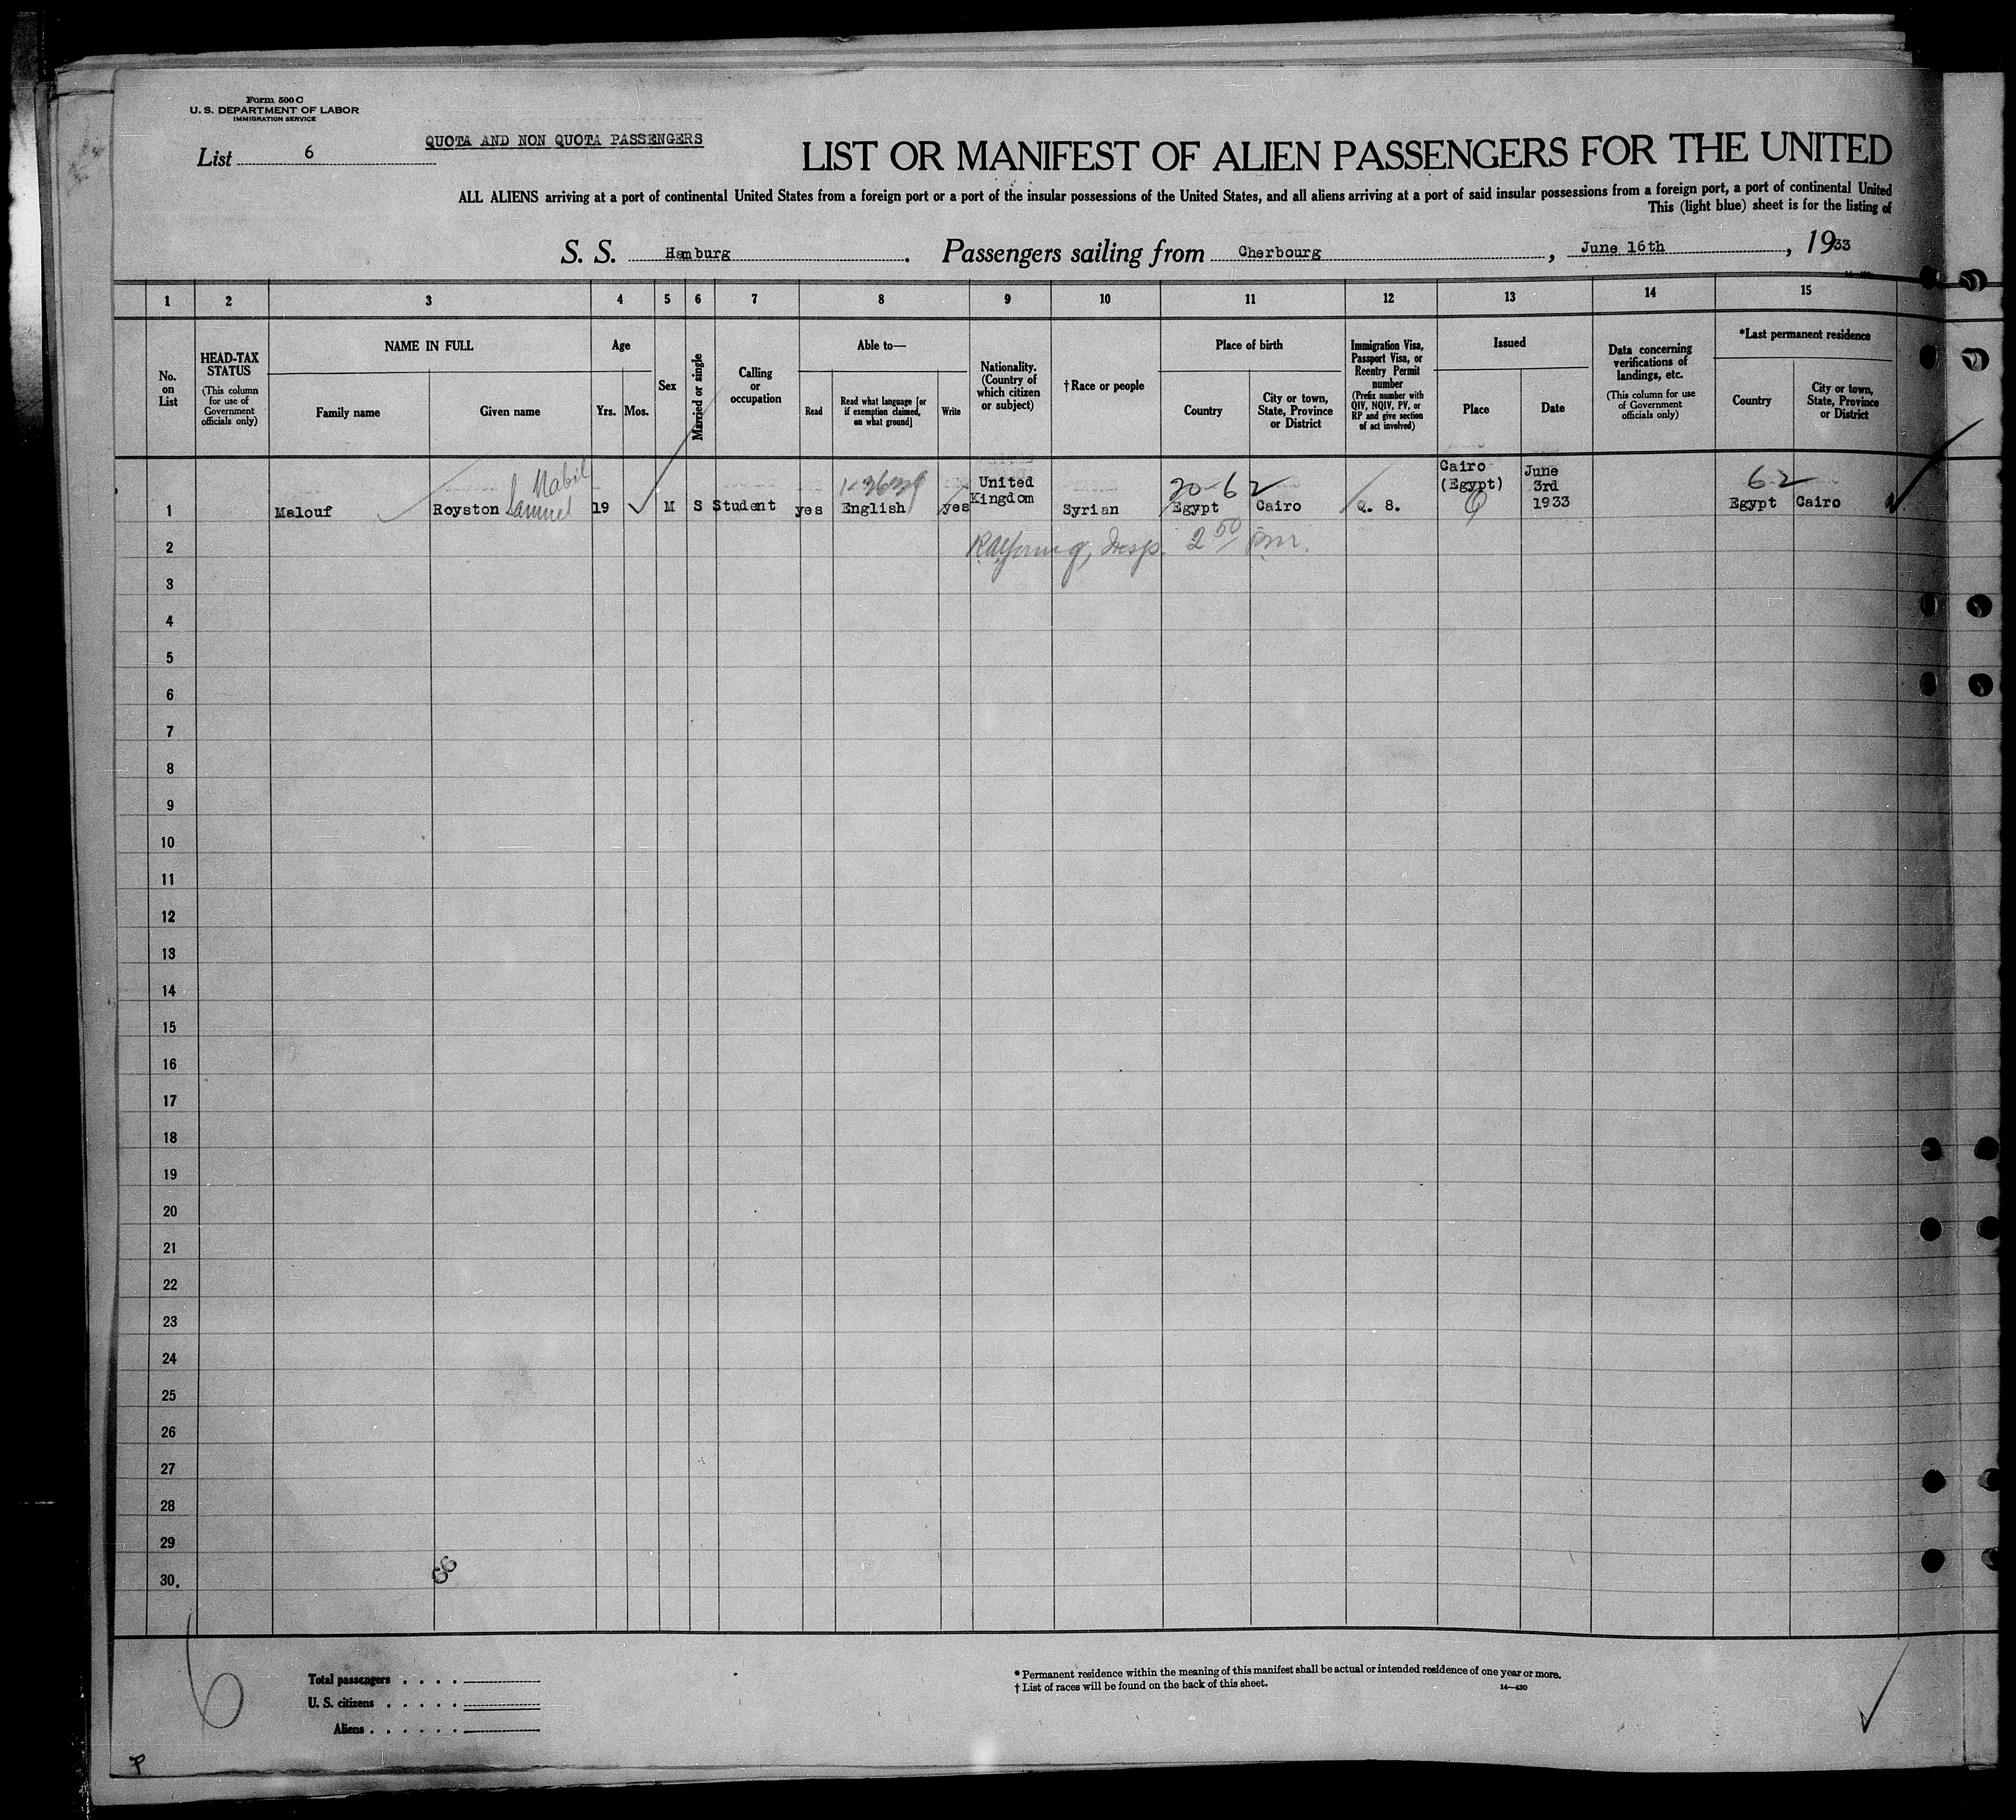 Form 500 C
U. S. DEPARTMENT OF LABOR
IMMIGRATION SERVICE
List 6
QUOTA AND NON QUOTA PASSENGERS
LIST OR MANIFEST OF ALIEN PASSENGERS FOR THE UNITED
ALL ALIENS arriving at a port of continental United States from a foreign port or a port of the insular possessions of the United States, and all aliens arriving at a port of said insular possessions from a foreign port, a port of continental United
This (light blue) sheet is for the listing of
S. S. Hamburg. Passengers sailing from Cherbourg, June 16th, 1933
1 2 3 4 5 6 7 8 9 10 11 12 13 14 15
No. on List
HEAD-TAX STATUS (This column for use of Government officials only)
NAME IN FULL
Family name
Given name
Age
Yrs.
Mos.
Sex
Married or single
Calling or occupation
Able to—
Read
Read what language [or if exemption claimed, on what ground]
Write
Nationality. (Country of which citizen or subject)
†Race or people
Place of birth
Country
City or town, State, Province or District
Immigration Visa, Passport Visa, or Reentry Permit number (Prefix number with QIV, NQIV, PV, or RP and give section of act involved)
Issued
Place
Date
Data concerning verifications of landings, etc. (This column for use of Government officials only)
*Last permanent residence
Country
City or town, State, Province or District
Nabil
1 Malouf Royston Samuel 19 M S Student yes English yes United Kingdom Syrian Egypt Cairo Q. 8. Cairo (Egypt) June 3rd 1933 Egypt Cairo
20-62
62
2 Insp. 2 50 pm.
3
4
5
6
7
8
9
10
11
12
13
14
15
16
17
18
19
20
21
22
23
24
25
26
27
28
29
30.
6
Total passengers
U. S. citizens
Aliens
* Permanent residence within the meaning of this manifest shall be actual or intended residence of one year or more.
† List of races will be found on the back of this sheet.
14—430